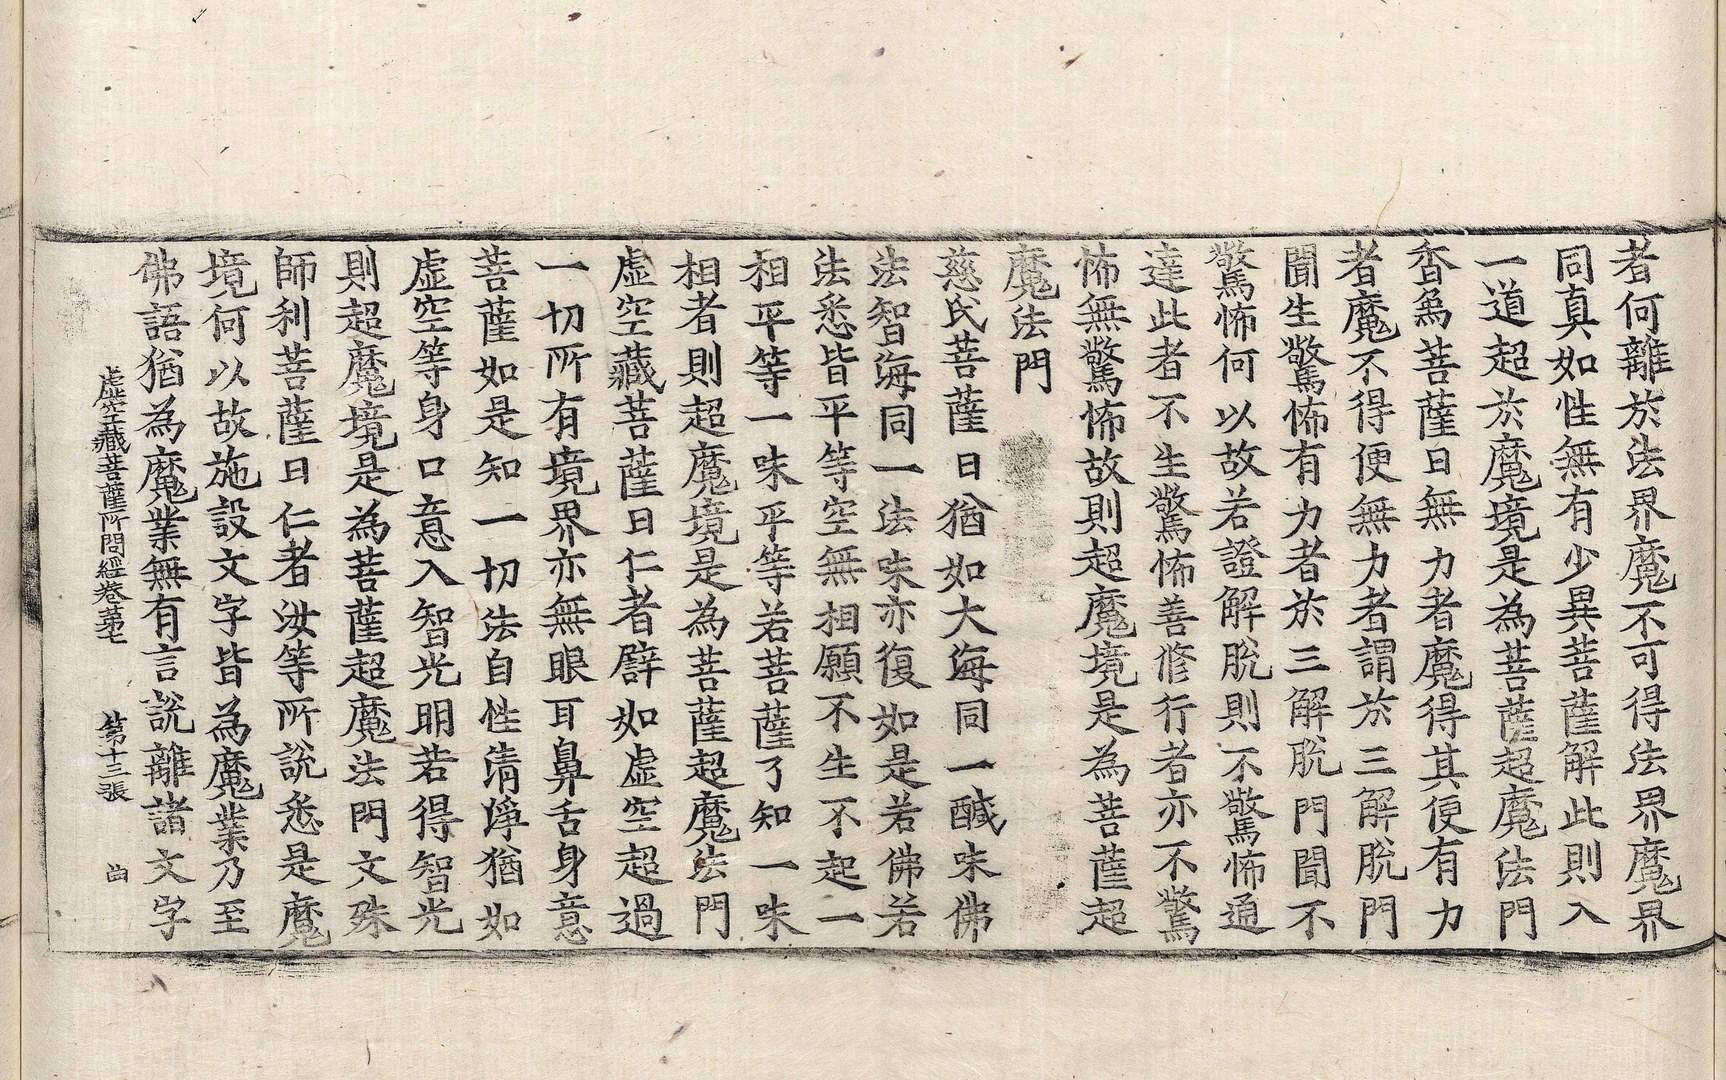 者何離於法界魔不可得法界魔界
同真如性無有少異菩薩解此則入
一道超於魔境是為菩薩超魔法門
香爲菩薩曰無力者魔得其便有力
者魔不得便無力者謂於三解脫門
聞生驚怖有力者於三解脫門聞不
驚怖何以故若證解脫則不驚怖通
達此者不生驚怖善修行者亦不驚
怖無驚怖故則超魔境是為菩薩超
魔法門
慈氏菩薩曰猶如大海同一醎味佛
法智海同一法味亦復如是若佛若
法悉皆平等空無相願不生不起一
相平等一味平等若菩薩了知一味
相者則超魔境是為菩薩超魔法門
虛空藏菩薩曰仁者譬如虛空超過
一切所有境界亦無眼耳鼻舌身意
菩薩如是知一切法自性清淨猶如
虛空等身口意入智光明若得智光
則超魔境是為菩薩超魔法門文殊
師利菩薩曰仁者汝等所說悉是魔
境何以故施設文字皆為魔業乃至
佛語猶為魔業無有言說離諸文字
虛空藏菩薩所問經卷第七 第十三張 凷